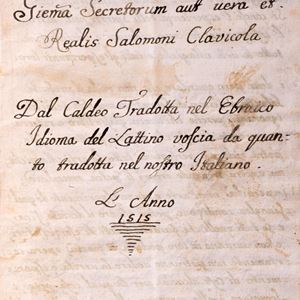 Giema Secretorum aut vera et.
Realis Salomoni Clavicola
Dal Caldeo Tradotta nel Ebraico
Idioma del Lattino voscia da quan-
to tradotta nel nostro Italiano.
L' Anno
1515